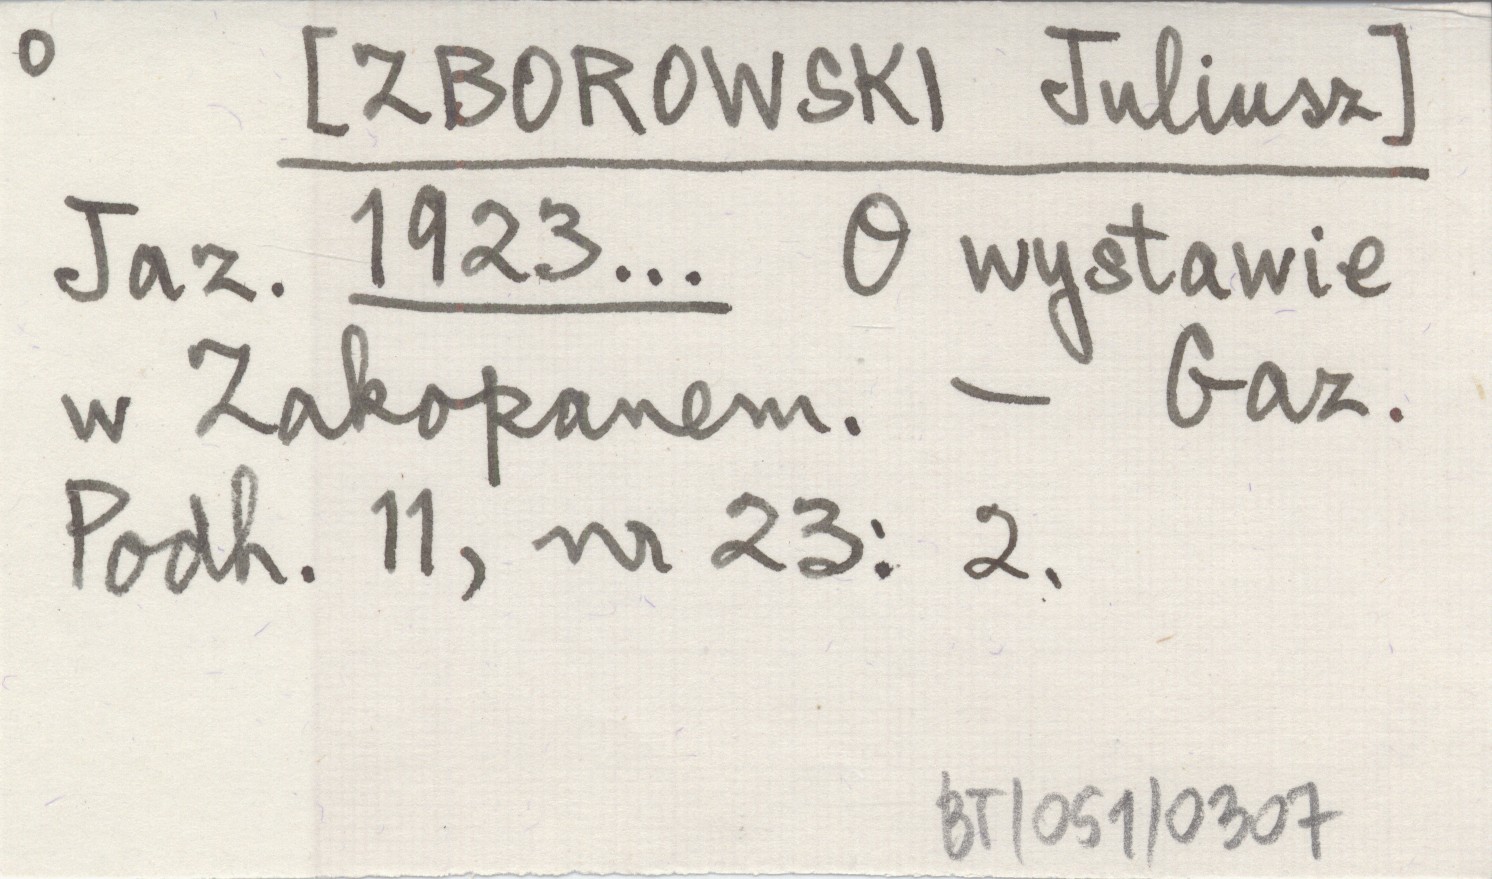 o [ZBOROWSKI Juliusz]
Jaz. 1923... O wystawie
w Zakopanem. — Gaz.
Podh. 11, nr 23: 2.
BT/051/0307